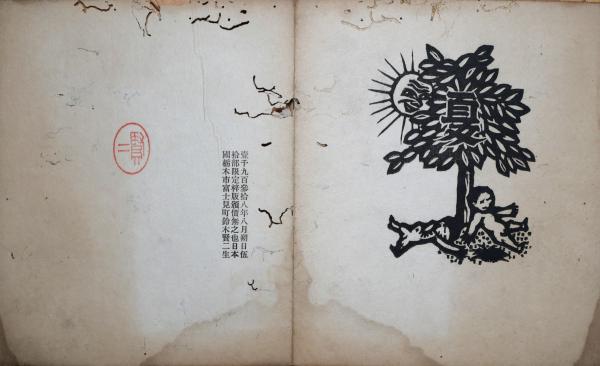 夏
壹千九百參拾八年八月朔日伍
拾部限定梓版頒價無之也日本
國栃木市富士見町鈴木賢二生
賢二